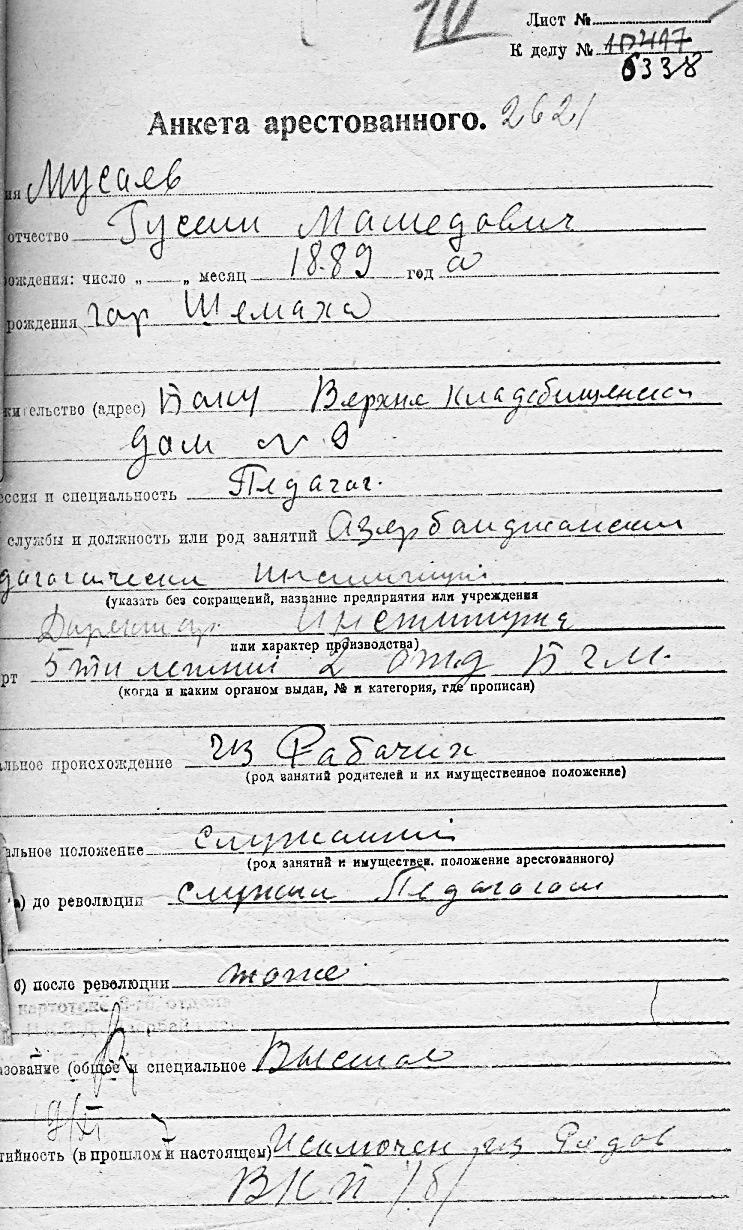 Лист №
К делу № 10417
6338
Анкета арестованного. 2621
ия Мусаев
отчество Гусеин Мамедович
рождения: число „ „ месяц 1889 год а
рождения гор Шемаха
жительство (адрес) Баку Верхне Кладбищенская
дом № 9
ессия и специальность Педагог.
службы и должность или род занятий Азербайджанский
дагогически Институт
(указать без сокращений, название предприятия или учреждения
Директор. Института
или характер производства)
рт 5ти летний 2 отд БГМ.
(когда и каким органом выдан, № и категория, где прописан)
альное происхождение из Рабочих
(род занятий родителей и их имущественное положение)
альное положение служащий
(род занятий и имуществен. положение арестованного)
а) до революции служил Педагогом
б) после революции тоже
картотеке отдела
азование (общое и специальное Высшое
тийность (в прошлом и настоящем) Исключен из Рядов
ВКП /б/